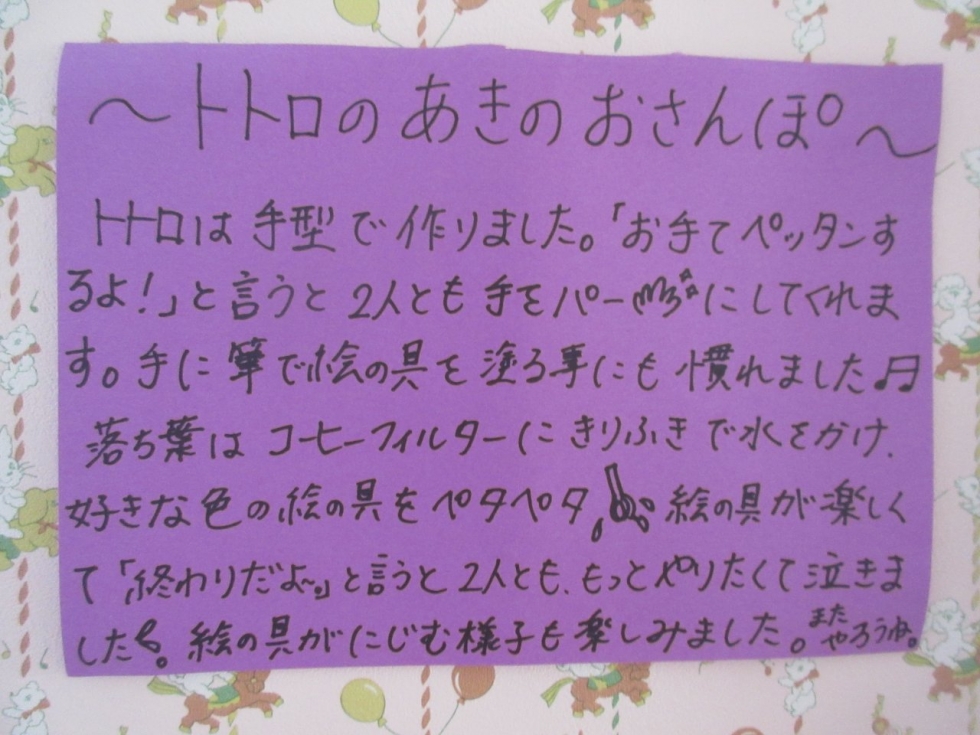 ～トトロのあきのおさんぽ～
トトロは手型で作りました。「お手てペッタンす
るよ！」と言うと2人とも手をパーにしてくれま
す。手に筆で絵の具を塗る事にも慣れました♫
落ち葉はコーヒーフィルターにきりふきで水をかけ、
好きな色の絵の具をペタペタ 絵の具が楽しく
て「終わりだよ〜。」と言うと2人とも、もっとやりたくて泣きま
した。絵の具がにじむ様子も楽しみました。また
やろうね。